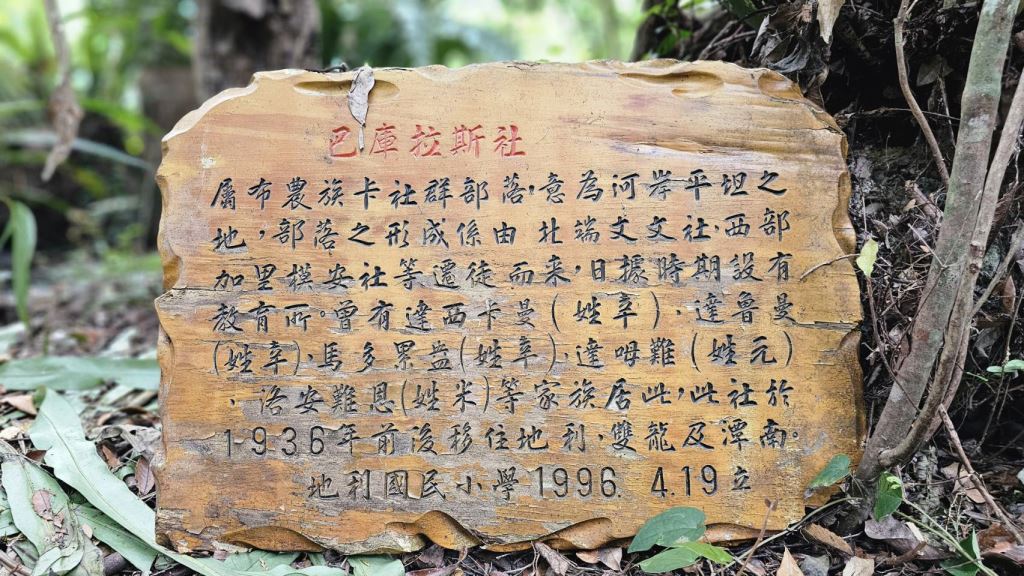 巴庫拉斯社
屬布農族卡社群部落,意為河岸平坦之
地,部落之形成係由北端丈文社、西部
加里模安社等遷徒而来,日據時期設有
教育所。曾有達西卡曼(姓幸)、達魯曼
(姓幸)、馬多累益(姓幸)、達呣難(姓元)
、洛安難恩(姓米)等家族居此,此社於
1936年前後移住地利、雙龍及潭南。
地利國民小學1996. 4.19立